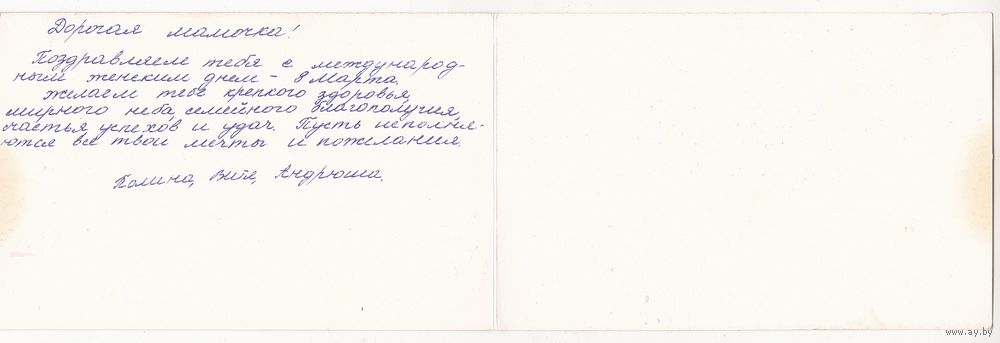 Дорогая мамочка!
Поздравляем тебя с международ-
ным женским днём - 8 Марта.
Желаем тебе крепкого здоровья,
мирного неба, семейного благополучия,
счастья, успехов и удач. Пусть исполня-
ются все твои мечты и пожелания.
Витя, Андрюша.
www.ay.by